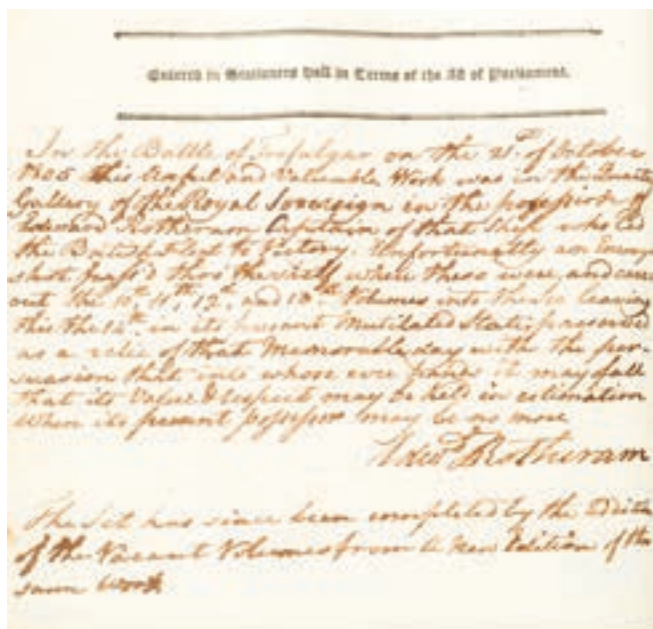 Entered in Stationers Hall in Terms of the Act of Parliament.
In the Battle of Trafalgar on the 21st of October
1805 this Useful and Valuable Work was in the
Gallery of the Royal Sovereign in the possession of
Edward Rotheram Captain of that Ship who led
the British Fleet to Victory. Unfortunately an
shot pass'd thro the shelf where these were and
out the 10th 11th, 12th, and 13th Volumes into the Sea leaving
this the 14th in its present Mutilated State, preserved
as a relic of that Memorable day with the per-
suasion that into whose ever hands it may fall
that its Value & respect may be held in estimation
When its present possessor may be no more
Edwd Rotheram
The Set has since been completed by the
of the Vacant Volumes from a New Edition of the
same Work